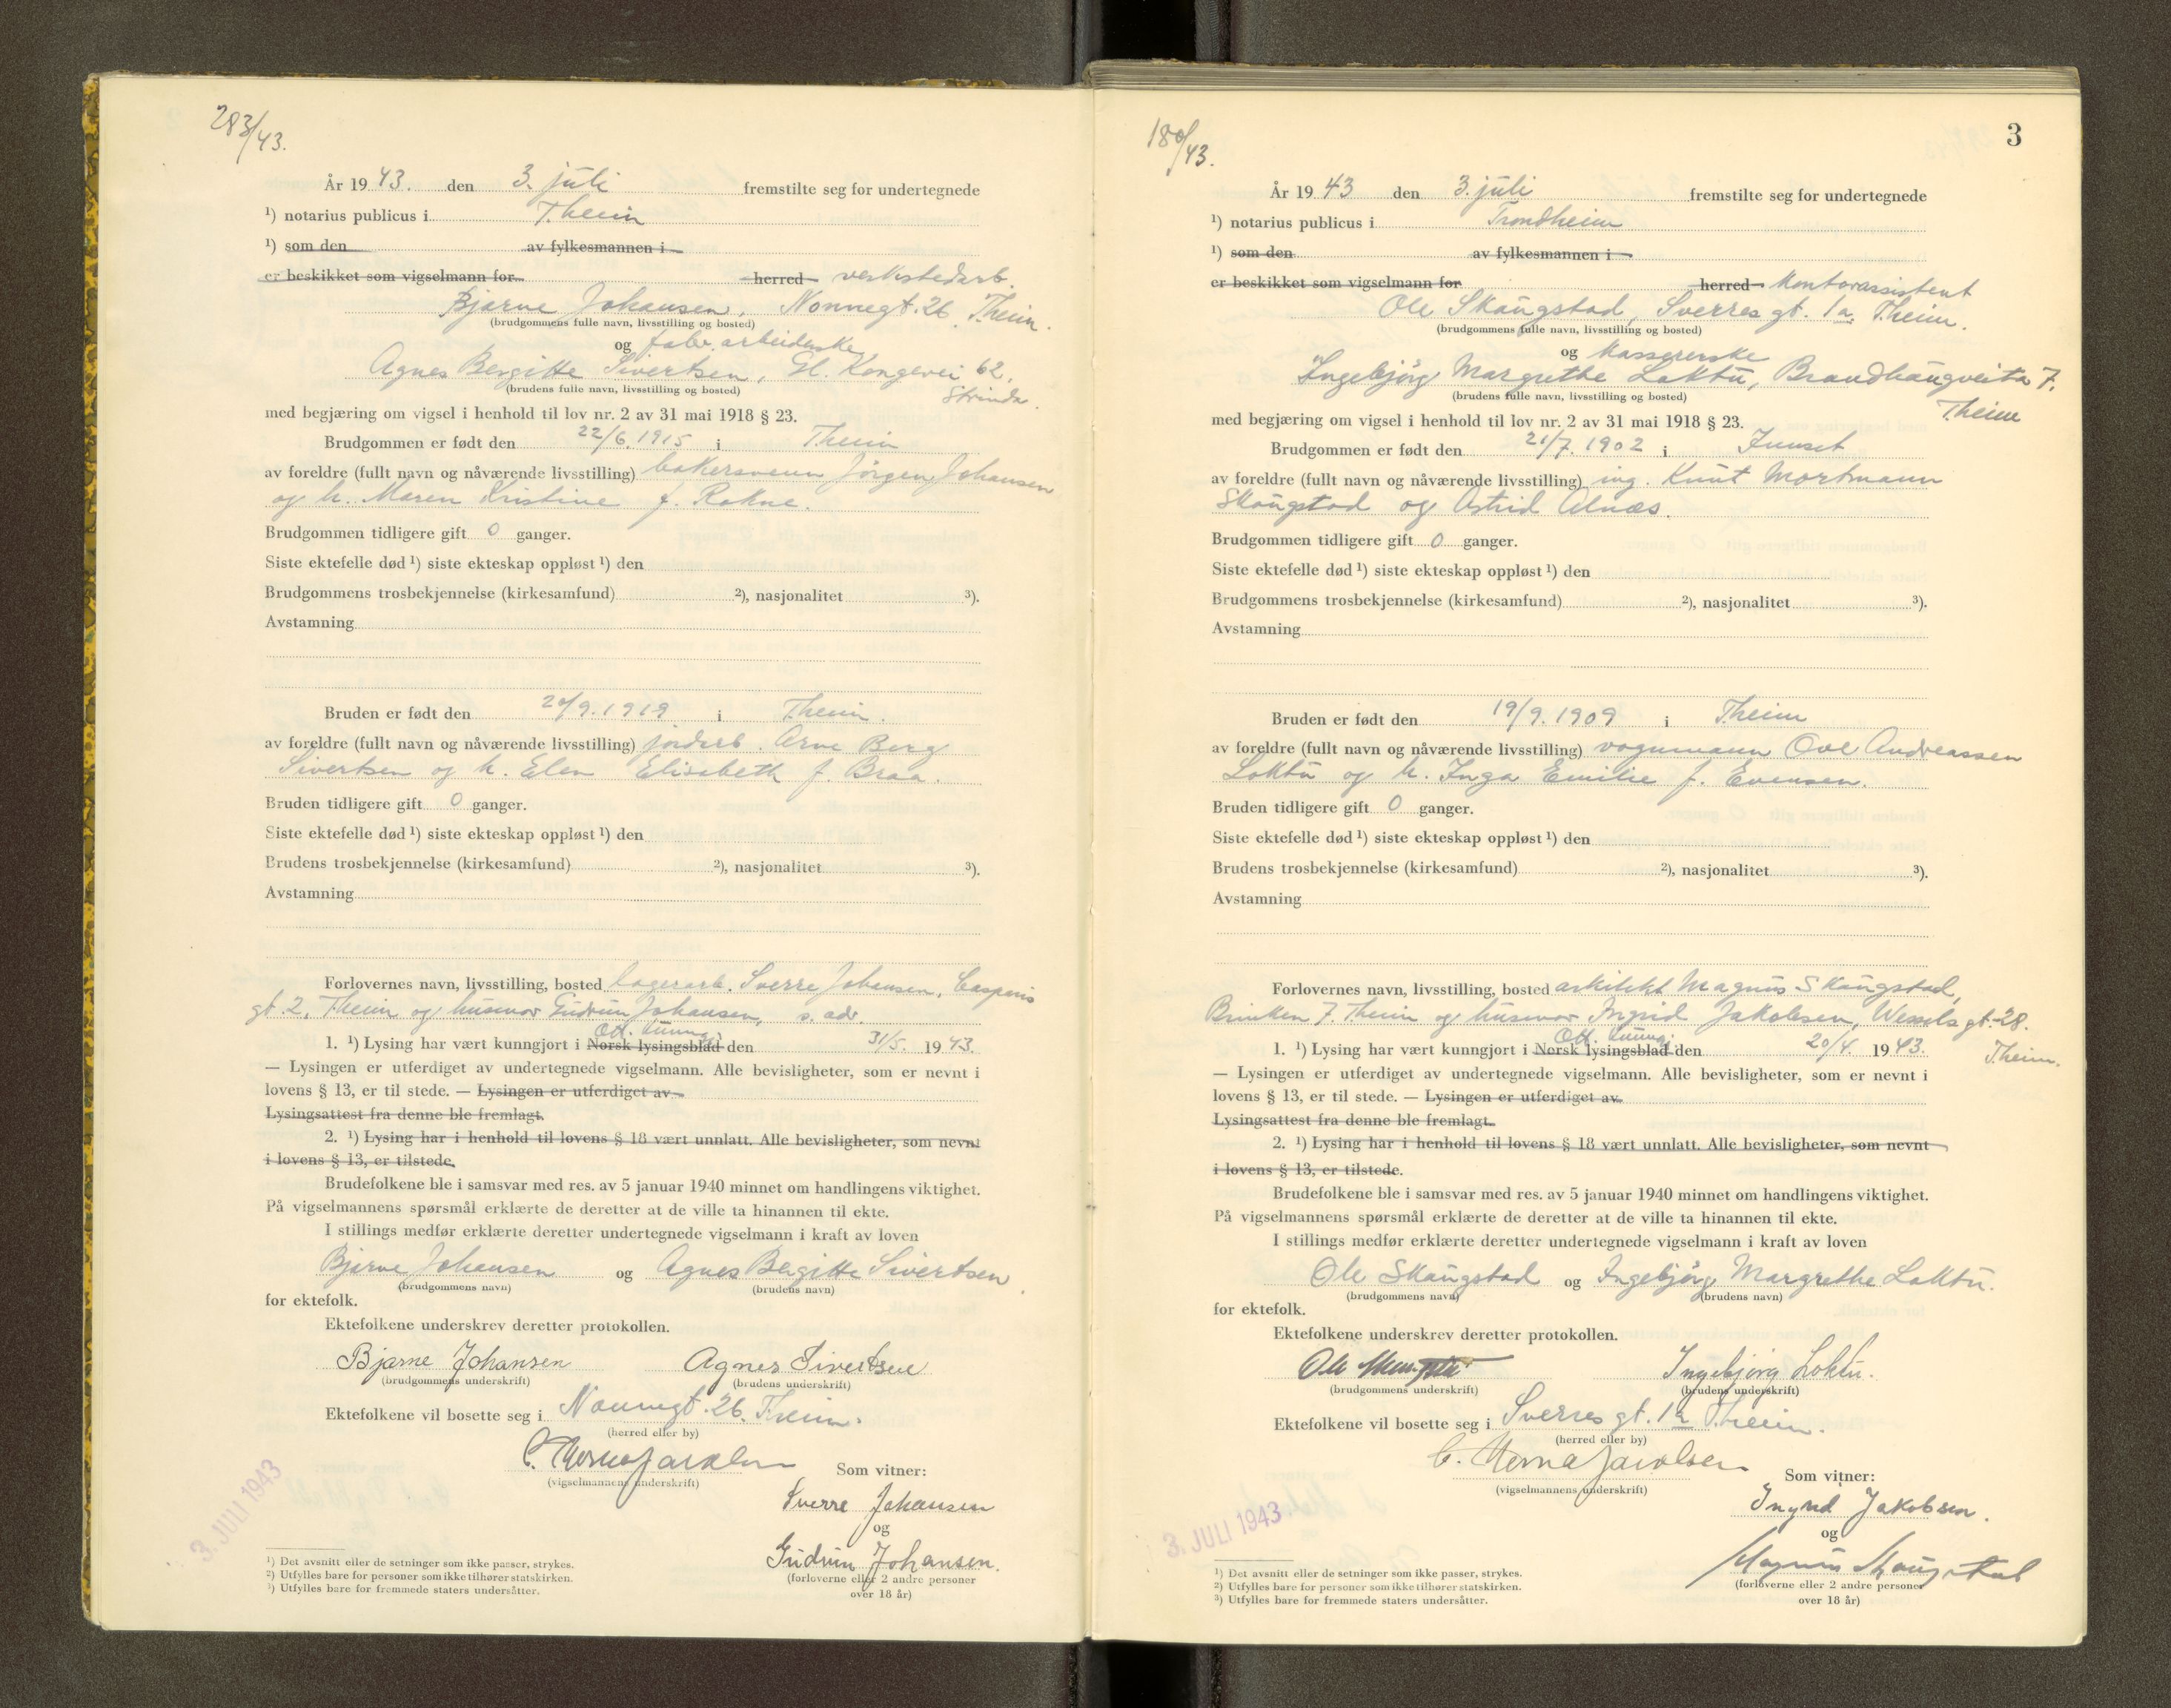 283/43.
År 19 43. den 3. juli fremstilte seg for undertegnede
¹) notarius publicus i T.heim
¹) som den av fylkesmannen i
er beskikket som vigselmann for herred verkstedarb.
Bjarne Johansen, Nonnegt. 26 T.heim.
(brudgommens fulle navn, livsstilling og bosted)
og fabr. arbeiderske
Agnes Bergitte Sivertsen, Gl. Kongevei 62,
(brudens fulle navn, livsstilling og bosted) Strinda.
med begjæring om vigsel i henhold til lov nr. 2 av 31 mai 1918 § 23.
Brudgommen er født den 22/6. 1915 i T.heim
av foreldre (fullt navn og nåværende livsstilling) bakersvenn Jørgen Johansen
og h. Maren Kristine f. Rokne.
Brudgommen tidligere gift 0 ganger.
Siste ektefelle død ¹) siste ekteskap oppløst ¹) den
Brudgommens trosbekjennelse (kirkesamfund) ²), nasjonalitet ³).
Avstamning
Bruden er født den 20/9. 1919 i T.heim.
av foreldre (fullt navn og nåværende livsstilling) jordarb. Arne Berg
Sivertsen og h. Elen Elisabeth f. Braa.
Bruden tidligere gift 0 ganger.
Siste ektefelle død ¹) siste ekteskap oppløst ¹) den
Brudens trosbekjennelse (kirkesamfund) ²), nasjonalitet ³).
Avstamning
Forlovernes navn, livsstilling, bosted lagerarb. Sverre Johansen, Casparis
gt. 2, T.heim og husmor Gudrun Johansen, s. adr.
Off. kunngj.
1. ¹) Lysing har vært kunngjort i Norsk lysingsblad den 31/5. 19 43.
— Lysingen er utferdiget av undertegnede vigselmann. Alle bevisligheter, som er nevnt i
lovens § 13, er til stede. — Lysingen er utferdiget av
Lysingsattest fra denne ble fremlagt.
2. ¹) Lysing har i henhold til lovens § 18 vært unnlatt. Alle bevisligheter, som nevnt
i lovens § 13, er tilstede.
Brudefolkene ble i samsvar med res. av 5 januar 1940 minnet om handlingens viktighet.
På vigselmannens spørsmål erklærte de deretter at de ville ta hinannen til ekte.
I stillings medfør erklærte deretter undertegnede vigselmann i kraft av loven
Bjarne Johansen og Agnes Bergitte Sivertsen
(brudgommens navn) (brudens navn)
for ektefolk.
Ektefolkene underskrev deretter protokollen.
Bjarne Johansen Agnes Sivertsen
(brudgommens underskrift) (brudens underskrift)
Ektefolkene vil bosette seg i Nonnegt. 26. T.heim.
(herred eller by)
(vigselmannens underskrift)
Som vitner:
Sverre Johansen
og
Gudrun Johansen.
(forloverne eller 2 andre personer
over 18 år)
3. JULI 1943
¹) Det avsnitt eller de setninger som ikke passer, strykes.
²) Utfylles bare for personer som ikke tilhører statskirken.
³) Utfylles bare for fremmede staters undersåtter.
180/43.
3
År 19 43 den 3. juli fremstilte seg for undertegnede
¹) notarius publicus i Trondheim
¹) som den av fylkesmannen i
er beskikket som vigselmann for herred Kontorassistent
Ole Skaugstad, Sverres gt. 1a. T.heim.
(brudgommens fulle navn, livsstilling og bosted)
og Kassererske
Ingebjørg Margrethe Loktu, Brandhaugveita 7.
(brudens fulle navn, livsstilling og bosted) T.heim
med begjæring om vigsel i henhold til lov nr. 2 av 31 mai 1918 § 23.
Brudgommen er født den 21/7. 1902 i Innset
av foreldre (fullt navn og nåværende livsstilling) ing. Knut Mortmann
Skaugstad og Astrid Alnæs.
Brudgommen tidligere gift 0 ganger.
Siste ektefelle død ¹) siste ekteskap oppløst ¹) den
Brudgommens trosbekjennelse (kirkesamfund) ²), nasjonalitet ³).
Avstamning
Bruden er født den 19/9. 1909 i T.heim
av foreldre (fullt navn og nåværende livsstilling) vognmann Ove Andreassen
Loktu og h. Inga Emilie f. Evensen.
Bruden tidligere gift 0 ganger.
Siste ektefelle død ¹) siste ekteskap oppløst ¹) den
Brudens trosbekjennelse (kirkesamfund) ²), nasjonalitet ³).
Avstamning
Forlovernes navn, livsstilling, bosted arkitekt Magnus Skaugstad,
Brinken 7. T.heim og husmor Ingrid Jakobsen, Wessels gt. 28.
Off. kunngj. T.heim.
1. ¹) Lysing har vært kunngjort i Norsk lysingsblad den 20/4. 19 43.
— Lysingen er utferdiget av undertegnede vigselmann. Alle bevisligheter, som er nevnt i
lovens § 13, er til stede. — Lysingen er utferdiget av
Lysingsattest fra denne ble fremlagt.
2. ¹) Lysing har i henhold til lovens § 18 vært unnlatt. Alle bevisligheter, som nevnt
i lovens § 13, er tilstede.
Brudefolkene ble i samsvar med res. av 5 januar 1940 minnet om handlingens viktighet.
På vigselmannens spørsmål erklærte de deretter at de ville ta hinannen til ekte.
I stillings medfør erklærte deretter undertegnede vigselmann i kraft av loven
Ole Skaugstad og Ingebjørg Margrethe Loktu.
(brudgommens navn) (brudens navn)
for ektefolk.
Ektefolkene underskrev deretter protokollen.
Ole Skaugstad Ingebjørg Loktu.
(brudgommens underskrift) (brudens underskrift)
Ektefolkene vil bosette seg i Sverres gt. 1a T.heim.
(herred eller by)
(vigselmannens underskrift)
Som vitner:
Ingrid Jakobsen.
og
Magnus Skaugstad
(forloverne eller 2 andre personer
over 18 år)
3. JULI 1943
¹) Det avsnitt eller de setninger som ikke passer, strykes.
²) Utfylles bare for personer som ikke tilhører statskirken.
³) Utfylles bare for fremmede staters undersåtter.